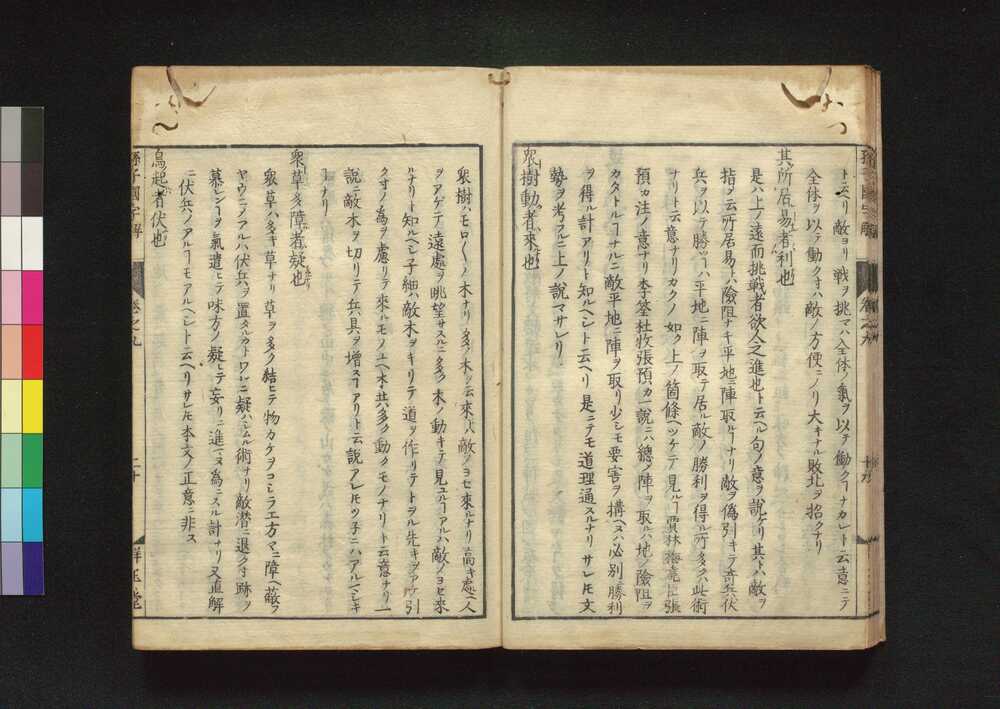 ト云ヘリ敵ヨリ戦ヲ挑マハ全体ノ氣ヲ以テ働クヿナカレト云意ニテ
全体ヲ以テ働クオハ敵ノ方便ニノリ大キナル敗北ヲ招クナリ
其所居易者利也
是ハ上ノ遠而挑戦者欲人之進也ト云ヘル句ノ意ヲ説ケリ其トハ敵ヲ
指テ云所居易トハ險阻ナキ平地ニ陣取ルヿナリ敵ヲ偽引キテ奇兵伏
兵ヲ以テ勝ツヿハ平地ニ陣ヲ取テ居ル敵ノ勝利ヲ得ル所多クハ此術
ナリト云意ナリカクノ如ク上ノ箇條ヘツケテ見ルヿ賈林梅堯臣張
預カ注ノ意ナリ李筌杜牧張預カ一説ニハ總ノ陣ヲ取ルハ地ノ險阻ヲ
カタトルヿナルニ敵平地ニ陣ヲ取リ少シモ要害ヲ構ヘスハ必別ノ勝利
ヲ得ル計アリト知ルヘシト云ヘリ是ニテモ道理通スルナリサレ𪜈文
勢ヲ考フルニ上ノ説マサレリ
衆樹動者來也
衆樹ハモロ〱ノ木ナリ多ノ木ヲ云來トハ敵ノヨセ來ルナリ高キ處ニ人
ヲアゲテ遠處ヲ眺望サスルニ多ク木ノ動キテ見ユルヿアルハ敵ノヨセ來
ルナリト知ルヘシ子細ハ敵木ヲキリテ道ヲ作リテトヲル先キヲアケ引
クオノ為ヲ慮リテ來ルモノユヘ木共多ク動クモノナリト云意ナリ一
説ニ敵木ヲ切リテ兵具ヲ増スヿアリト云説アレ𪜈ツ子ニハアルマシキ
ヿナリ
衆草多障者疑也
衆草ハ多キ草ナリ草ヲ多ク結ヒテ物カケヲコシラエ方マニ障ヘ蔽フ
ヤウニノアルハ伏兵ヲ置タルカトワレニ疑ハシムル術ナリ敵潜ニ退クオ跡ヲ
慕レンヿヲ氣遣ヒテ味方ノ疑ヒテ妄リニ進マヌ為ニスル計ナリ又直解
ニ伏兵ノアルヿモアルヘシト云ヘリサレ𪜈本文ノ正意ニ非ス
鳥起者伏也
孫子國字解
卷之九
二十
群玉堂